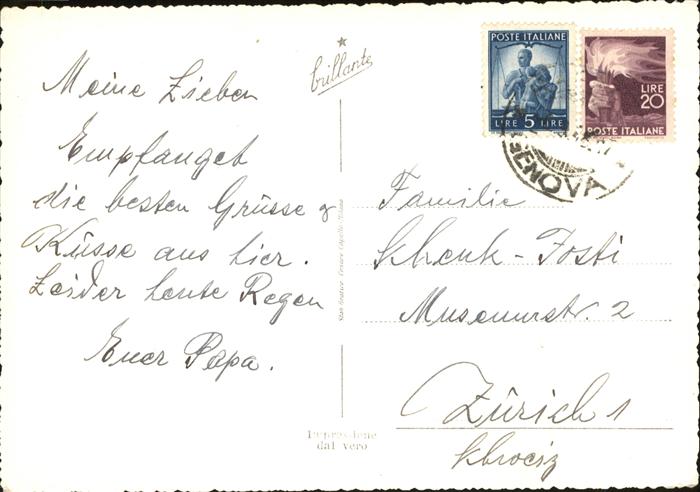 Meine Lieben
Empfanget
die besten Grüsse &
Küsse aus hier.
Leider heute Regen
Euer Papa.
brillante
Impressione
dal vero
POSTE ITALIANE
LIRE 5 LIRE
LIRE
20
POSTE ITALIANE
GENOVA
Familie
Schenk-Josti
Museumstr. 2
Zürich 1
Schweiz